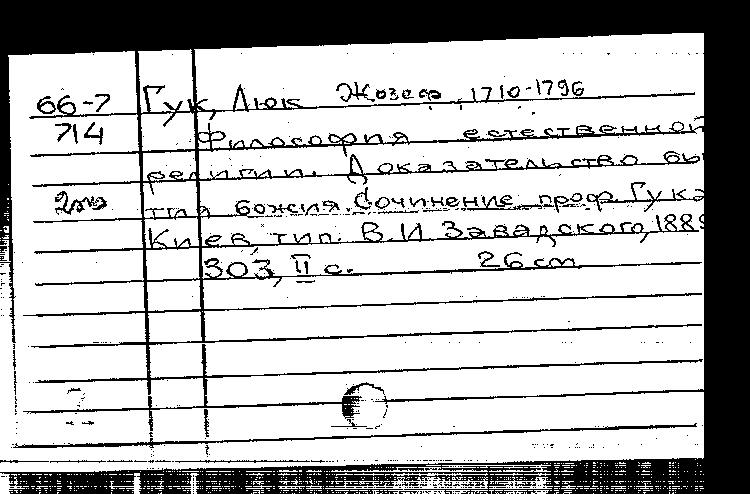 66-7 Гук, Люк Жозеф, 1710-1796
714 Философия естественной
религии. Доказательство бы
тия божия. Сочинение проф. Гука
Киев, тип. В.И Завадского, 188
303, II с. 26 cm